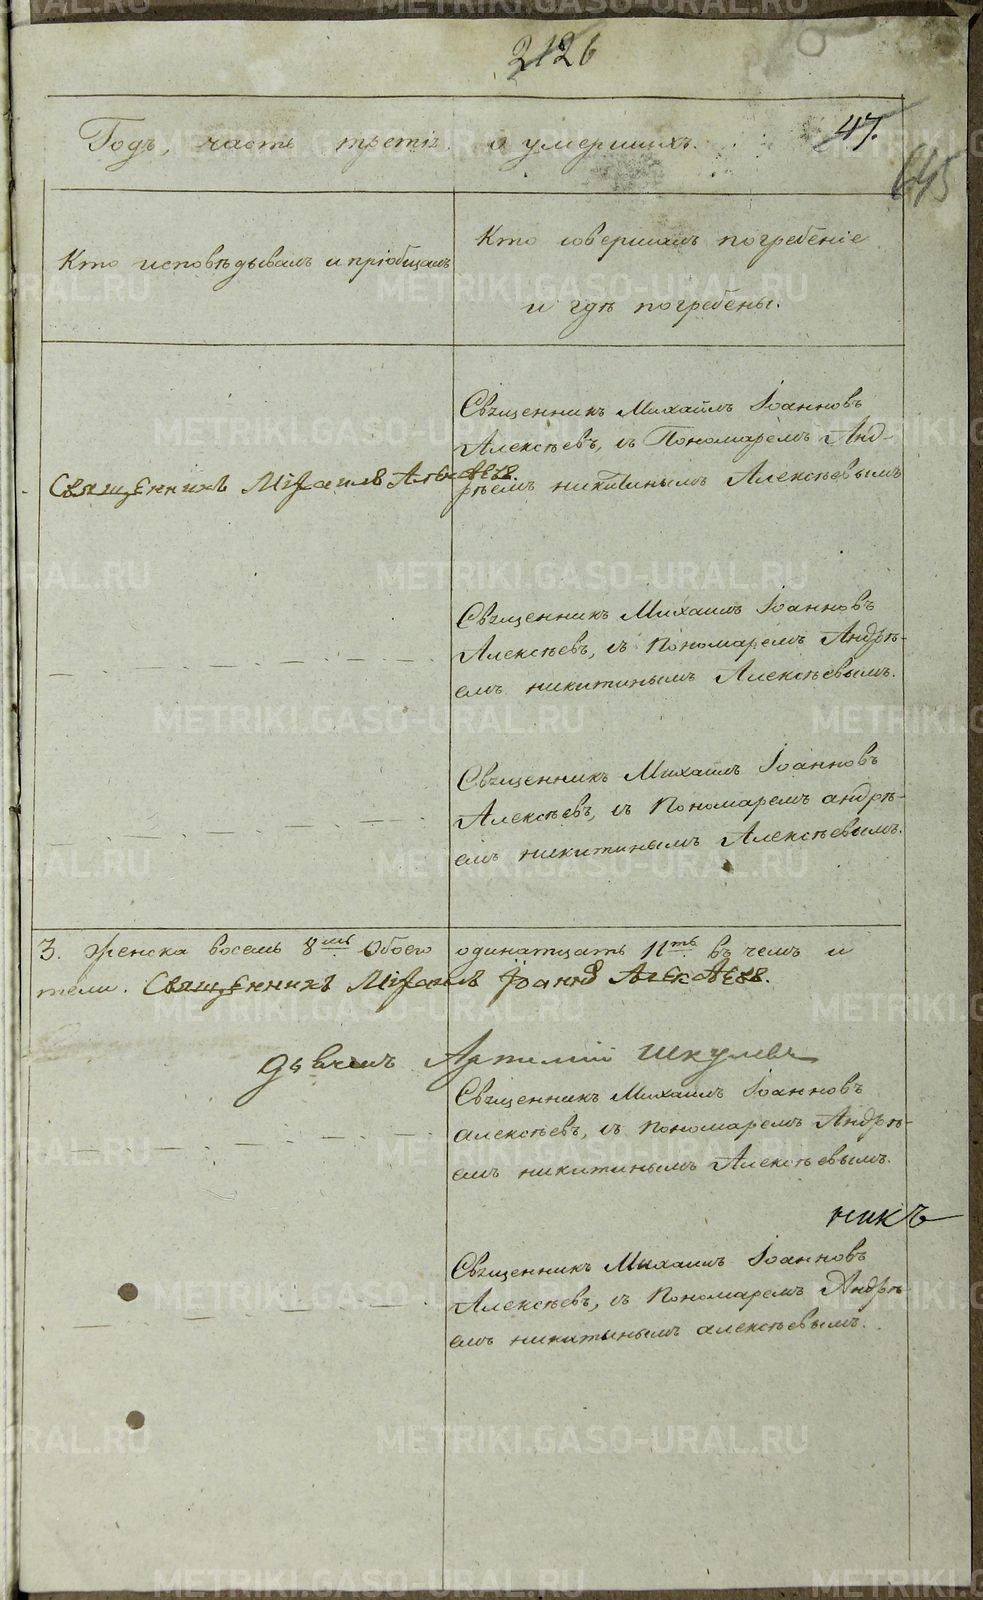 2126
Годъ, часть третія о умершихъ.
47.
645
Кто исповѣдывалъ и пріобщалъ
Кто совершалъ погребеніе
и гдѣ погребены.
Священникъ Михаилъ Алексѣевъ.
Священникъ Михаилъ Іоанновъ
Алексѣевъ, съ Пономаремъ Анд-
рѣемъ никитинымъ Алексѣевымъ
Священникъ Михаилъ Іоанновъ
Алексѣевъ, съ Пономаремъ Андрѣ-
емъ никитинымъ Алексѣевымъ.
Священникъ Михаилъ Іоанновъ
Алексѣевъ, съ Пономаремъ андрѣ-
емъ никитинымъ Алексѣевымъ.
3. Женска восемь 8мь Обоего одинатцать 11ть въ чемъ и
тели. Священникъ Михаилъ Іоанновъ Алексѣевъ.
Артемій Шкулевъ
Священникъ Михаилъ Іоанновъ
алексѣевъ, съ Пономаремъ Андрѣ-
емъ никитинымъ Алексѣевымъ.
никъ
Священникъ Михаилъ Іоанновъ
Алексѣевъ, съ Пономаремъ Андрѣ-
емъ никитинымъ алексѣевымъ.
METRIKI.GASO-URAL.RU